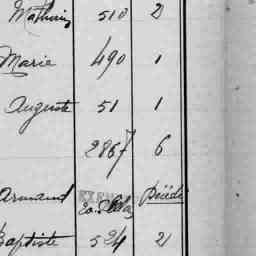 Mathurin 510 2
Marie 490 1
Auguste 51 1
2867 6
Armand
Baptiste 524 2